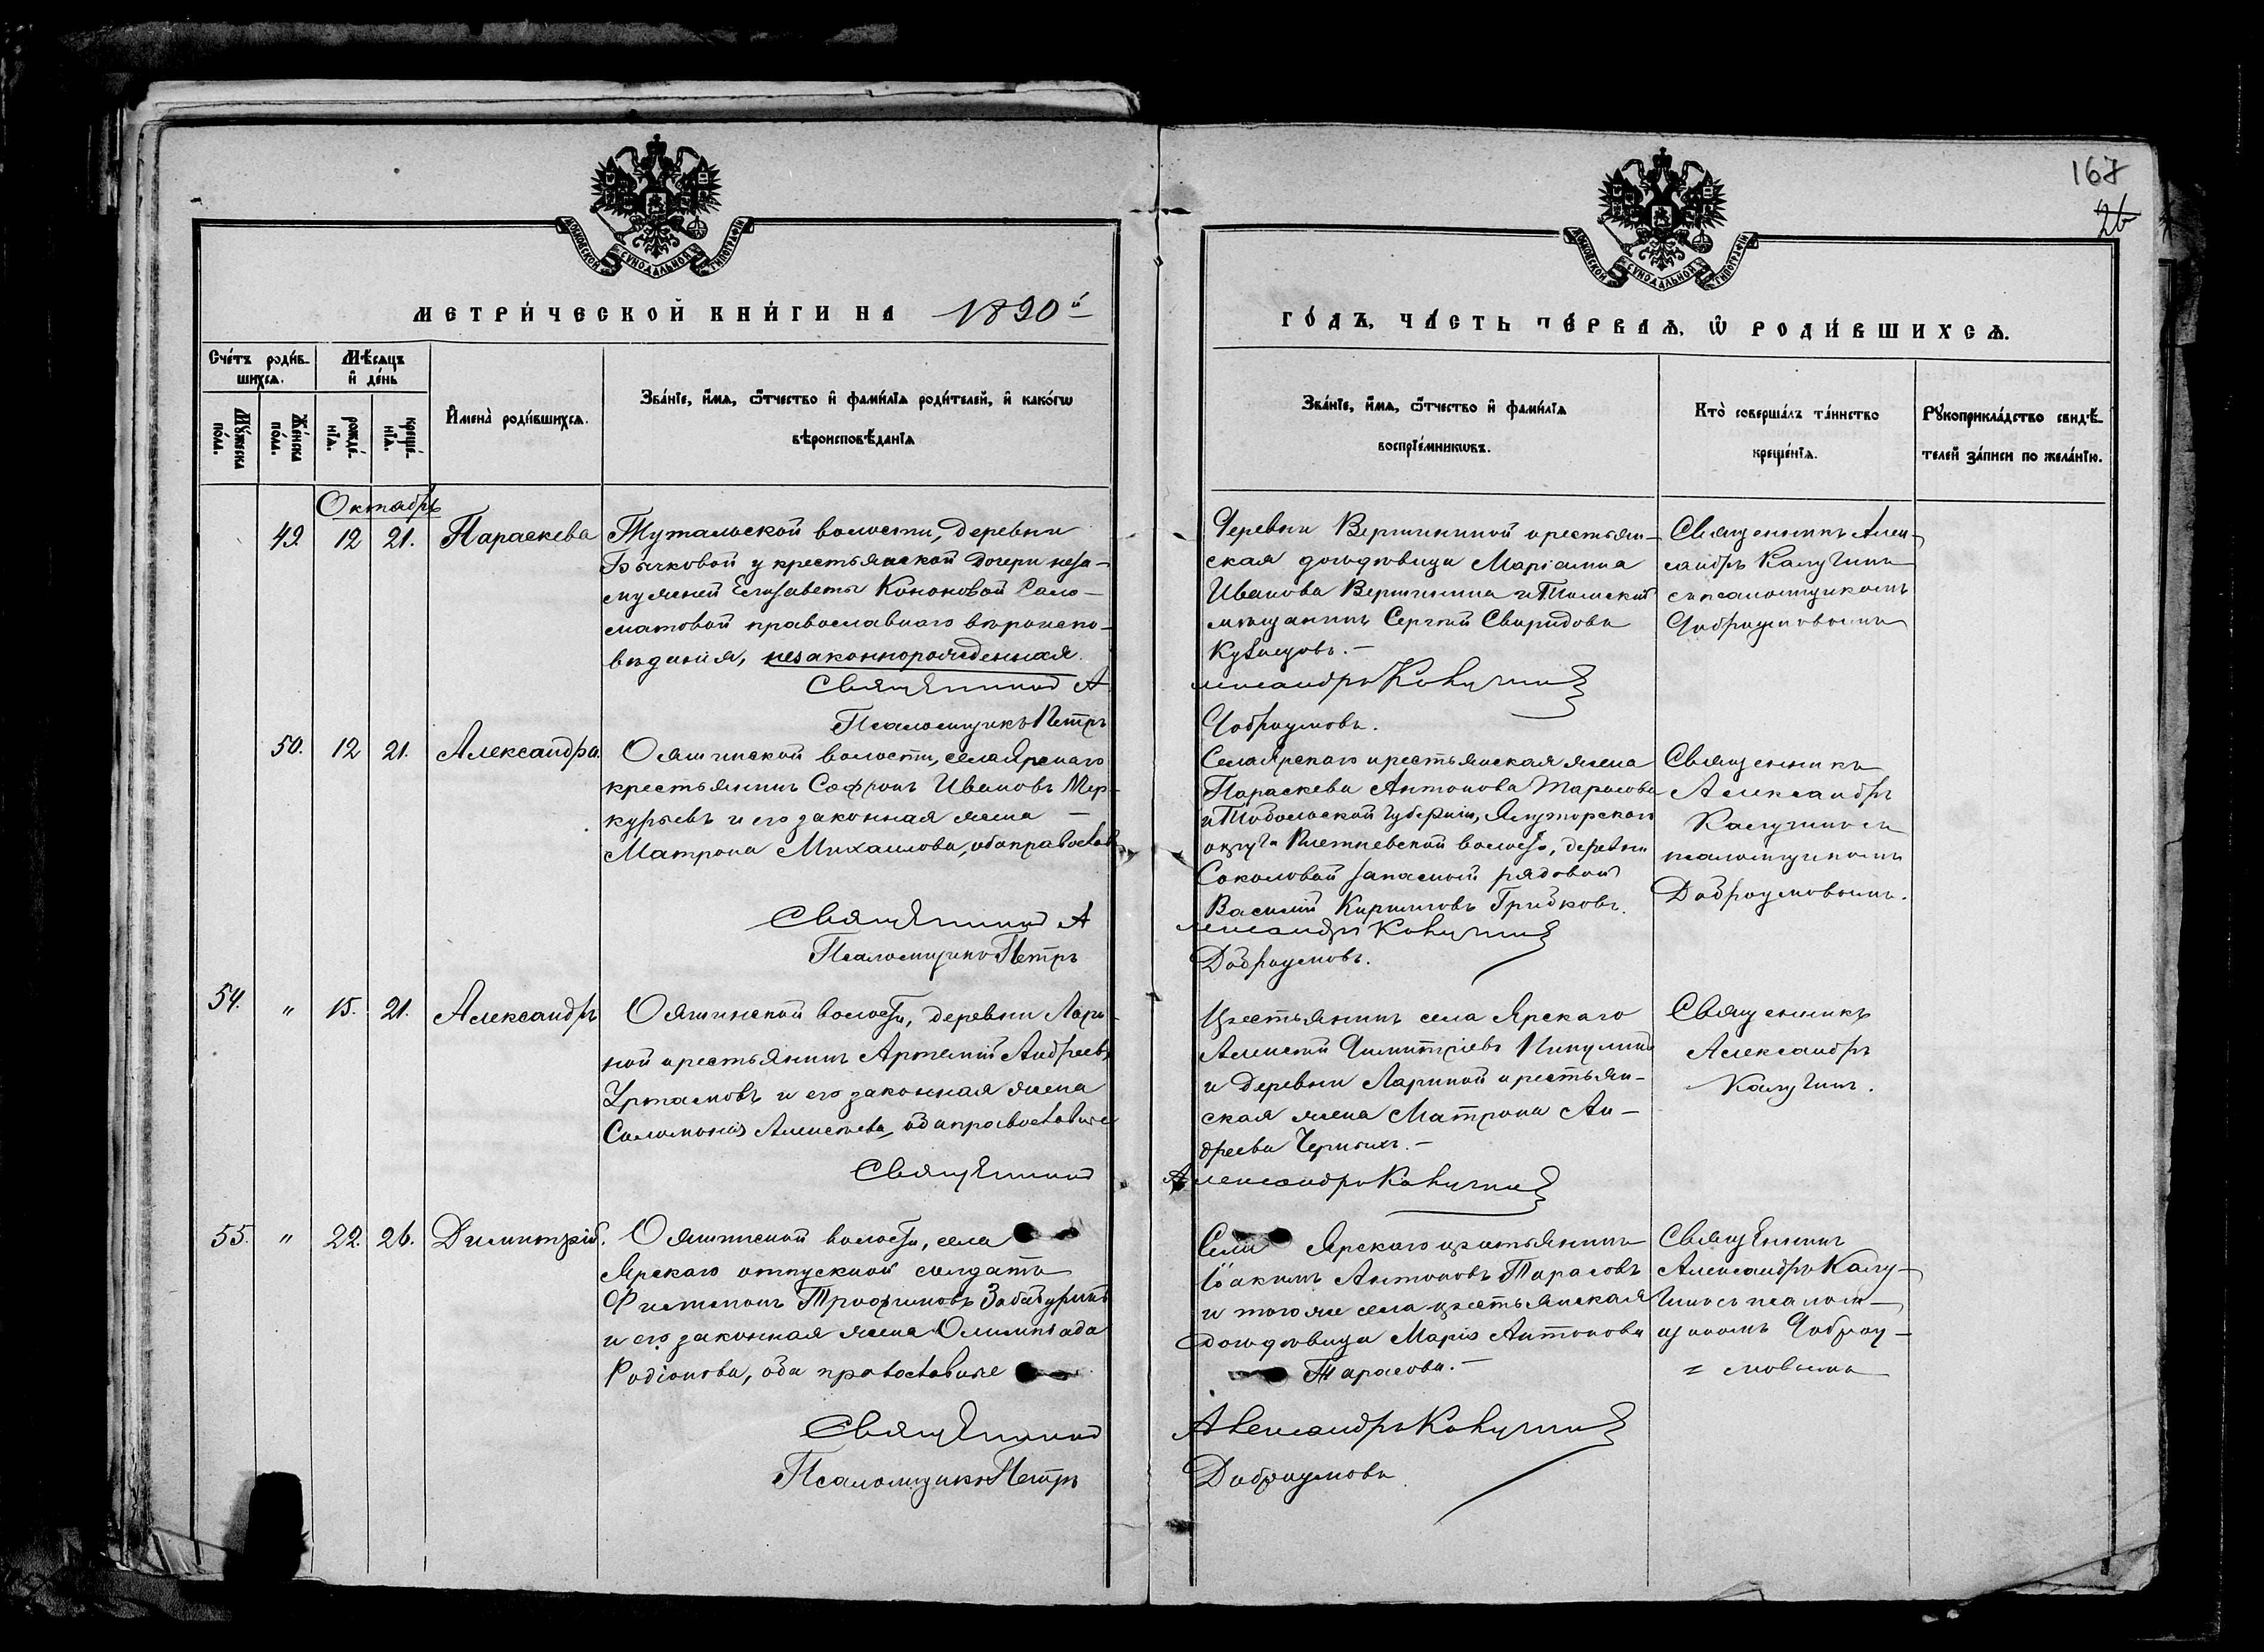 167
26
МОСКОВСКОЙ СѴНОДАЛЬНОЙ ТИПОГРАФІИ
МОСКОВСКОЙ СѴНОДАЛЬНОЙ ТИПОГРАФІИ
МЕТРИ́ЧЕСКОЙ КНИ́ГИ НА 1890й
ГО́ДЪ, ЧА́СТЬ ПЕ́РВАѦ, Ѡ҆ РОДИ́ВШИХСѦ.
Сче́тъ роди́в-
шихсѧ.
Мѣ́сѧцъ
и҆ де́нь
Мꙋ́жеска
по́ла.
Же́нска
по́ла.
рожде́-
нїѧ.
креще́-
нїѧ.
И҆мена̀ роди́вшихсѧ.
Зва́нїе, и҆́мѧ, ѻ҆́тчество и҆ фами́лїѧ роди́телей, и҆ како́гѡ
вѣроисповѣ́данїѧ
Зва́нїе, и҆́мѧ, ѻ҆́тчество и҆ фами́лїѧ
воспрїе́мникѡвъ.
Кто̀ соверша́лъ та́инство
креще́нїѧ.
Рꙋкоприкла́дство свидѣ́-
телей за́писи по жела́нїю.
Октябрь
49. 12 21. Параскева
Тутальской волости, деревни
Бычковой у крестьянской дочери неза-
мужней Елисаветы Кононовой Сало-
матовой православнаго вѣроиспо-
вѣданія, незаконнорожденная.
Священникъ А
Псаломщикъ Петръ
Деревни Вершининой крестьян-
ская дочь девица Маріамна
Иванова Вершинина и Томский
мѣщанинъ Сергѣй Свиридовъ
Кузнецовъ. –
лександръ Калугинъ
Доброумовъ.
Священникъ Алек-
сандръ Калугинъ
съ псаломщикомъ
Доброумовымъ
50. 12 21. Александра.
Ояшинской волости, села Ярскаго
крестьянинъ Софронъ Ивановъ Мер-
курьевъ и его законная жена –
Матрона Михаилова, оба православ
Священникъ А
Псаломщикъ Петръ
Села Ярскаго крестьянская жена
Параскева Антонова Тарасова
и Тобольской губерніи, Ялуторскаго
округа Плетневской волости, деревни
Соколовой запасной рядовой
Василій Кириловъ Грибковъ.
лександръ Калугинъ
Доброумовъ.
Священникъ
Александръ
Калугинъ съ
псаломщикомъ
Доброумовымъ.
54. " 15. 21. Александръ
Ояшинской волости, деревни Лари-
ной крестьянинъ Артемій Андреевъ
Уртамовъ и его законная жена
Соломонія Алексѣева, оба православные
Священникъ
Крестьянинъ села Ярскаго
Алексѣй Димитріевъ Пикулинъ
и деревни Лариной крестьян-
ская жена Матрона Ан-
дреева Черныхъ. –
Александръ Калугинъ
Священникъ
Александръ
Калугинъ.
55. " 22. 26. Димитрій.
Ояшинской волости, села
Ярскаго отпускной солдатъ
Филимонъ Трофимовъ Забабуринъ
и его законная жена Олимпіада
Родіонова, оба православные
Священникъ
Псаломщикъ Петръ
Села Ярскаго крестьянинъ
Іоакимъ Антоновъ Тарасовъ
и того же села крестьянская
дочь девица Марія Антонова
Тарасова. –
Александръ Калугинъ
Доброумовъ
Священникъ
Александръ Калу-
гинъ съ псалом-
щикомъ Доброу-
= мовымъ